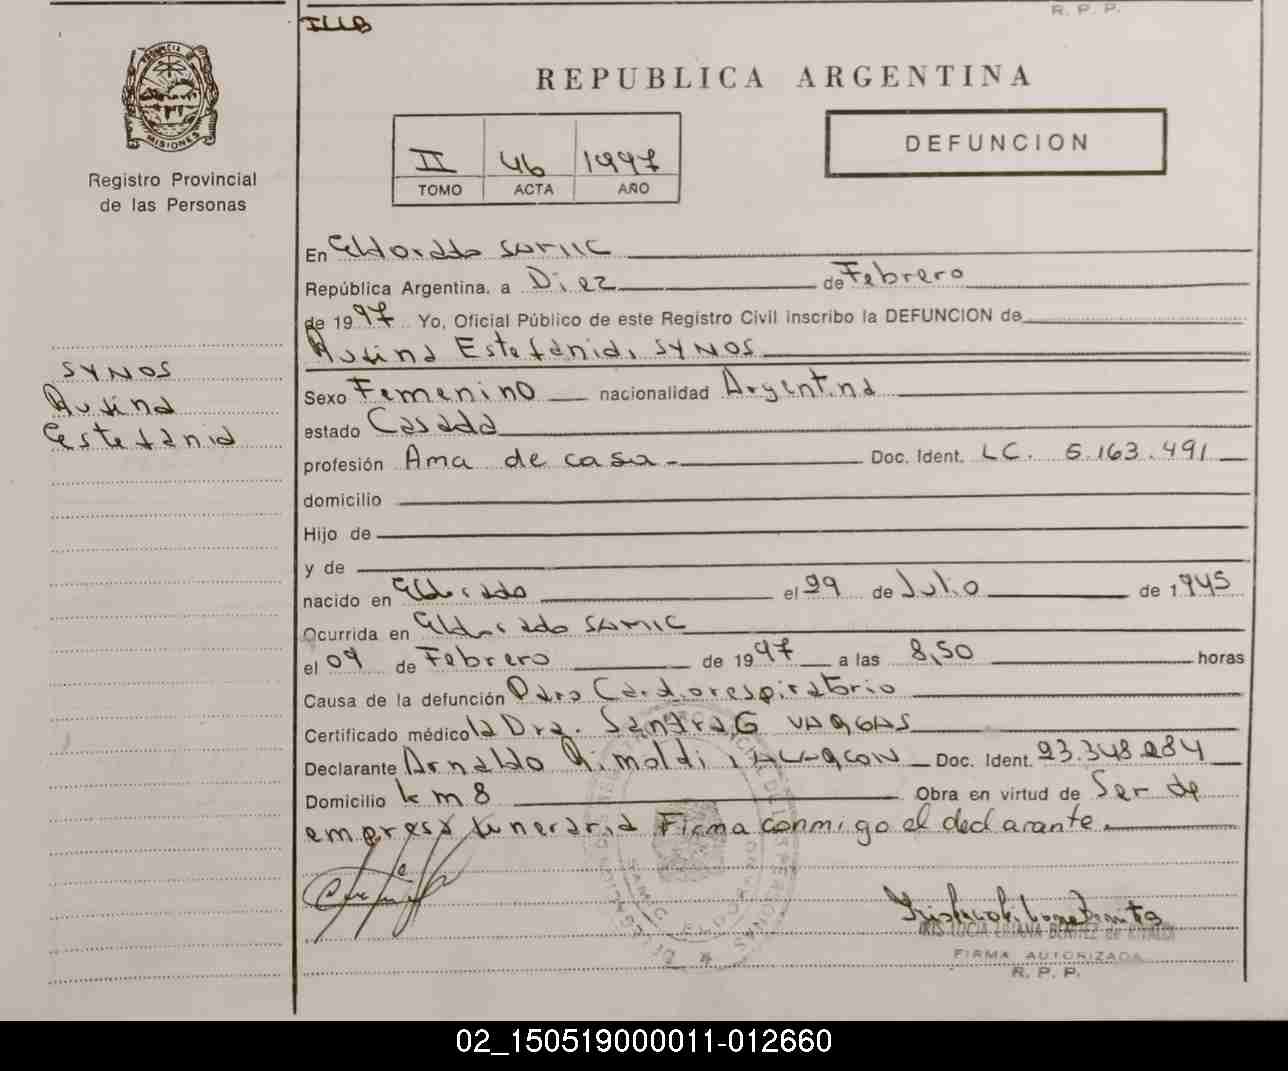 R. P. P.
ILLB
PROVINCIA DE
MISIONES
Registro Provincial
de las Personas
REPUBLICA ARGENTINA
II 46 1997
TOMO ACTA AÑO
DEFUNCION
En Eldorado SAMIC
República Argentina, a Diez de Febrero
de 1997 Yo, Oficial Público de este Registro Civil inscribo la DEFUNCION de
Rufina Estefania, SYNOS
SYNOS
Rufina
Estefania
Sexo Femenino nacionalidad Argentina
estado Casada
profesión Ama de casa - Doc. Ident. LC. 5.163.491
domicilio
Hijo de
y de
nacido en Eldorado el 29 de Julio de 1945
Ocurrida en Eldorado SAMIC
el 09 de Febrero de 1997 a las 8,50 horas
Causa de la defunción Paro Cardiorespiratorio
Certificado médico la Dra. Sandra G VARGAS
Declarante Arnaldo Rimoldi Doc. Ident. 23.348.284
Domicilio km 8 Obra en virtud de Ser de
empresa funeraria Firma conmigo el declarante.
SAMIC ELDORADO
IRIS LUCIA LILIANA BENITEZ de
FIRMA AUTORIZADA
R. P. P.
02_150519000011-012660